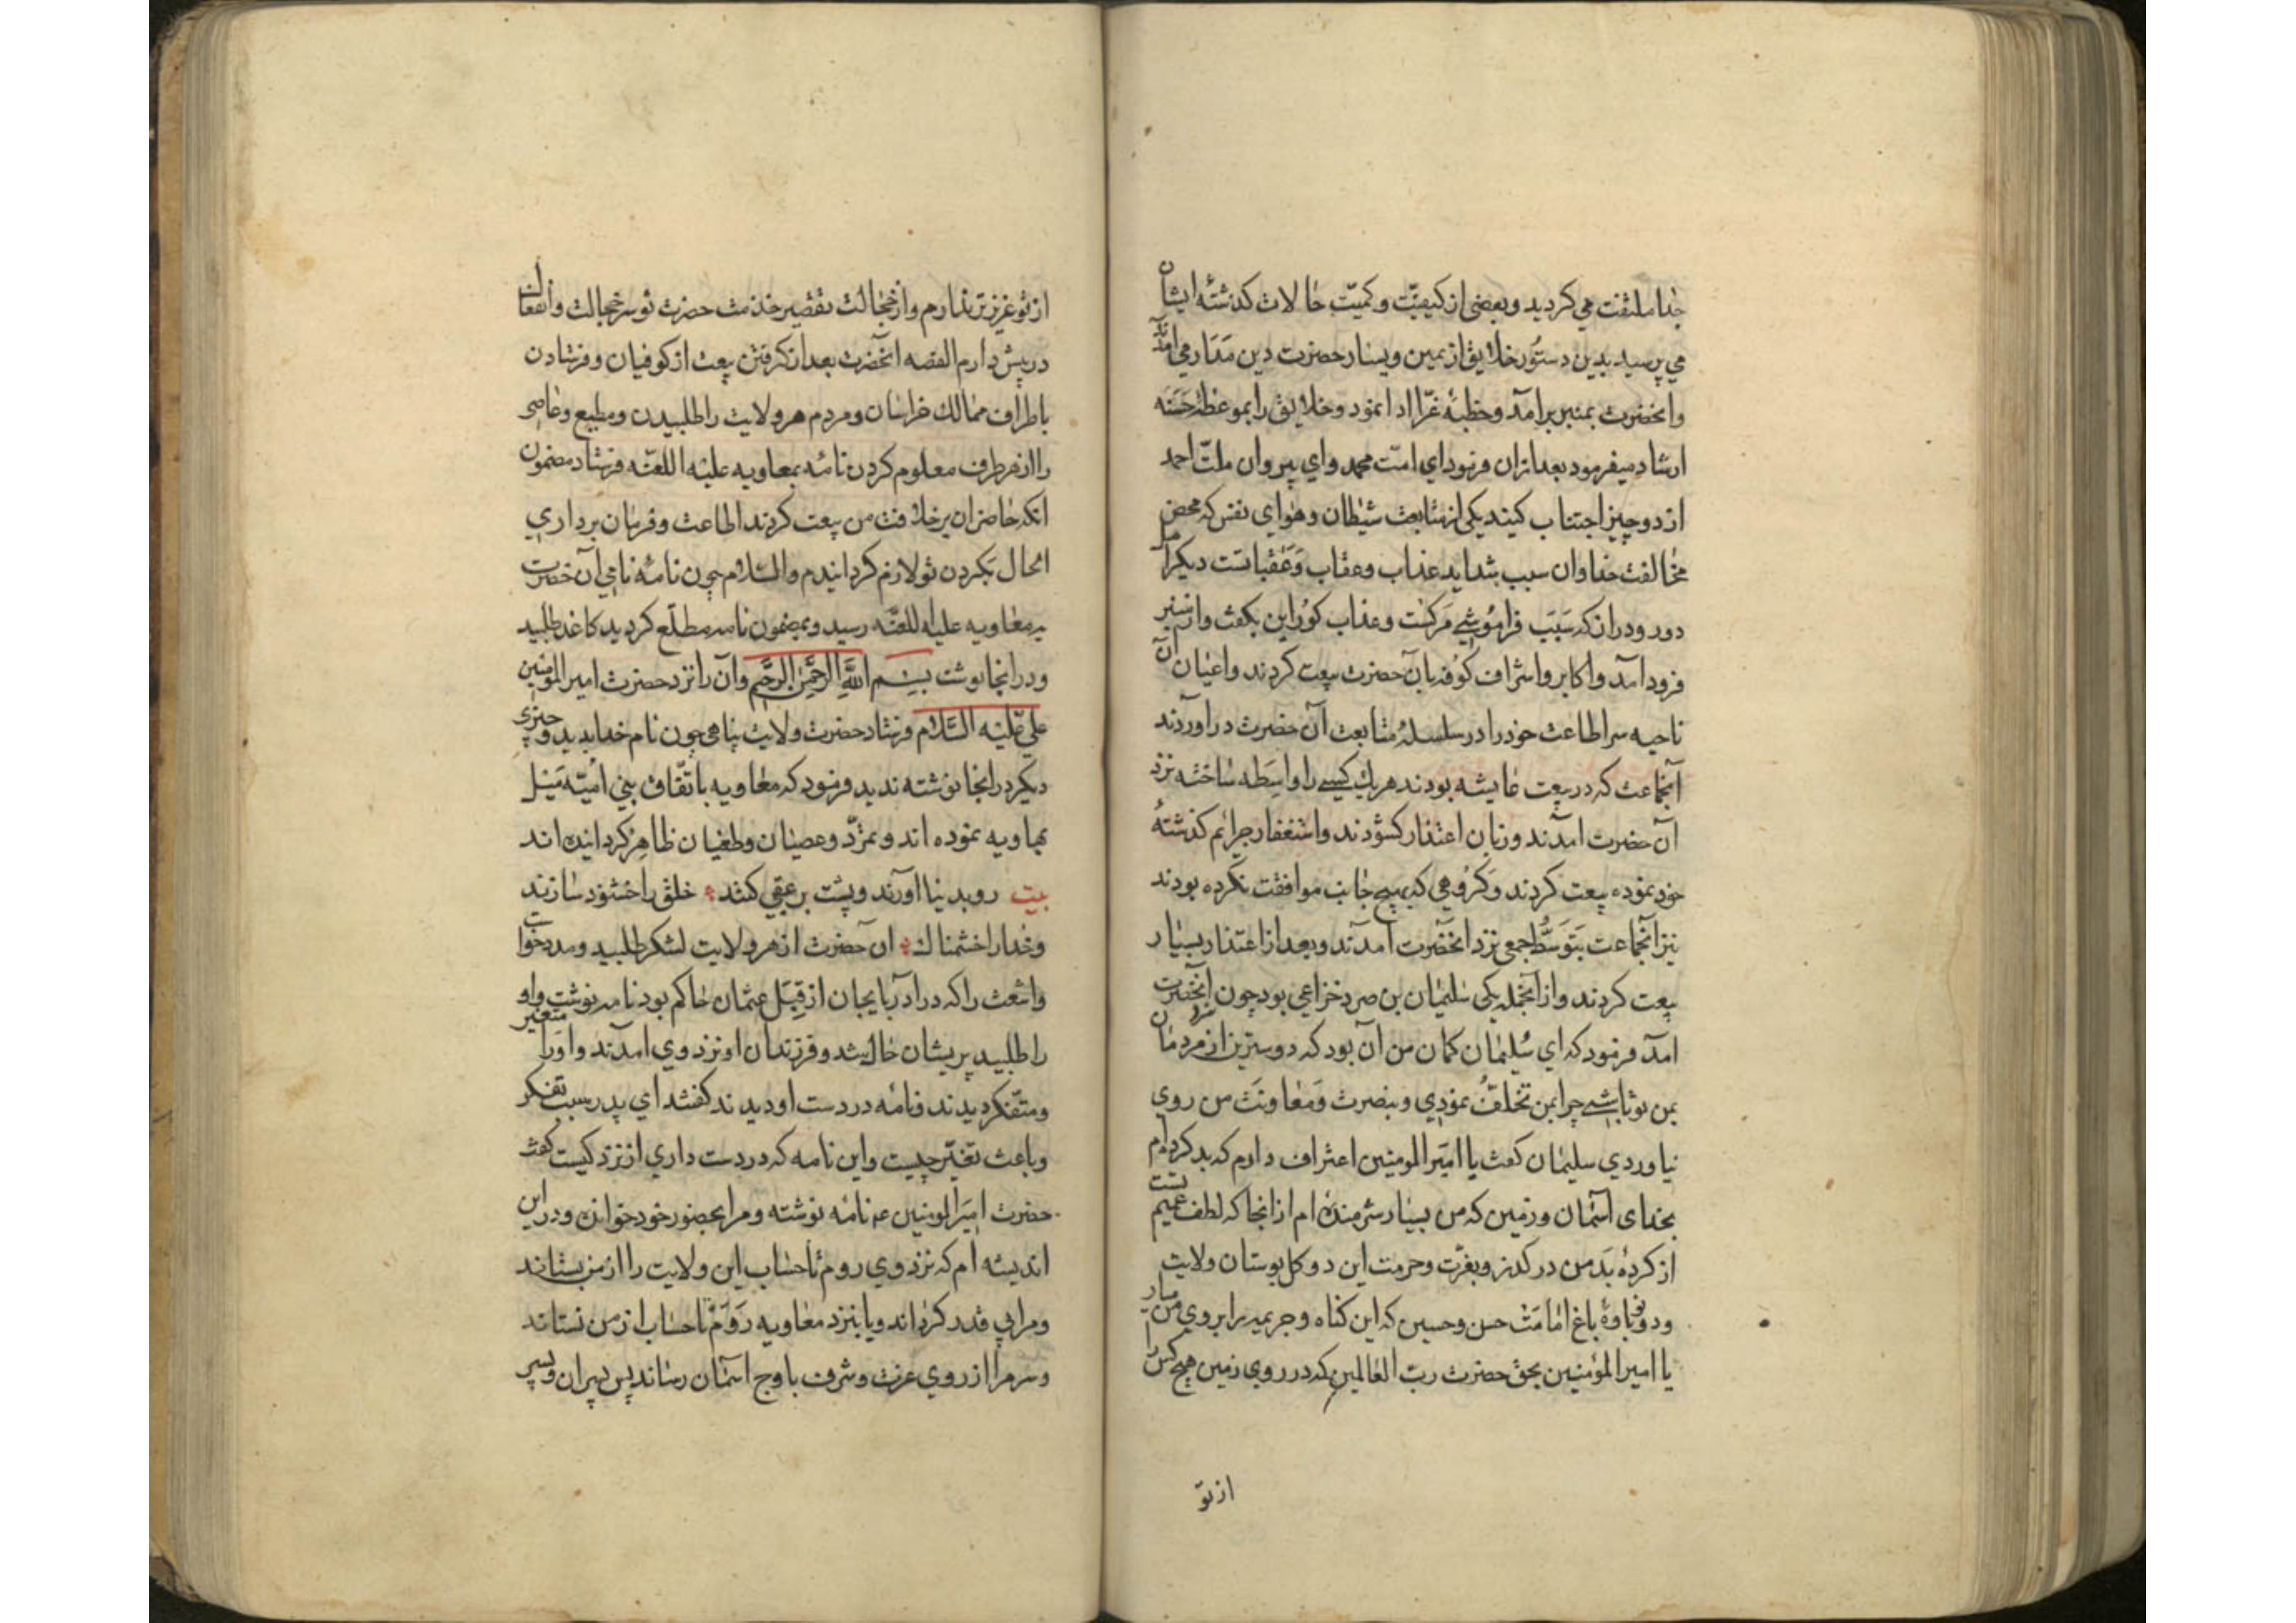 جدا ملتفت می کردید وبعضی از کیفیّت وکمیّت حالات کذشته ایشان
می پرسید بدین دستور خلایق از یمین ویسار حضرت دین مدار می آمدند
وانحضرت بمنبر برآمد وخطبهٔ غرّا ادا نمود وخلایق را بموعظهٔ حَسَنه
ارشاد میفرمود بعد ازان فرمود ای امّت محمد وای پیروان ملّت احمد
از دو چیز اجتناب کنید یکی از متابعت شیطان وهوای نفس که محض
مخالفت خدا وان سبب شداید عذاب وعقاب وَعَقبات است دیکر امل
دور ودران که سَبَب فراموشی مَرکست وعذاب کور این بکفت واز منبر
فرود امد واکابر واشراف کوفه بآن حضرت بیعت کردند واعیان آن
ناحیه سر اطاعت خود را در سلسلهٔ متابعت آن حضرت در اوردند
آنجماعت که در بیعت عایشه بودند هر یك کسی را واسَطه ساخته نزد
آن حضرت امدند وزبان اعتذار کشودند واستغفار جرائم کذشتهٔ
خود نموده بیعت کردند وَکرُوهی که بهیچ جانب موافقت نکرده بودند
نیز آنجماعت بَتَوَسُّط جمعی نزد انحضرت امدند وبعد از اعتذار بسیار
بیعت کردند واز آنجمله یکی سلیمان بن صرد خزاعی بود چون نزد آنحضرت
امد فرمود که ای سُلیمان کمان من آن بود که دوسترین از مردمان
بمن تو باشی چرا بمن تخلّف نمودی وبنصرت وَمعاونَت من روی
نیاوردی سلیمان کفت یا امیَر المومنین اعتراف دارم که بد کرده ام
بخدای اسمان وزمین که من بسیار شرمنده ام از انجا که لطف عمیم تست
از کردهٔ بَد من در کذر وبعزّت وحرمت این دو کل بوستان ولایت
ودو نوباوهٔ باغ امامَت حسن وحسین که این کناه وجریمه را بروی من میار
یا امیر المؤمنین بحق حضرت ربّ العالمین که در روی زمین هیچ کس را
از تو
از تو عزیزتر ندارم واز خجالت تقصیر خدمت حضرت تو سر خجالت وانفعال
در پیش دارم القصه انحضرت بعد از کرفتن بیعت از کوفیان وفرستادن
باطراف ممالك خراسان ومردم هر ولایت را طلبیدن ومطیع وعاصی
را از هر طرف معلوم کردن نامهٔ بمعاویه علیه اللعنه فرستاد مضمون
انکه حاضران بر خلافت من بیعت کردند اطاعت وفرمان برداری
الحال بکردن تو لازم کردانیدم والسلام چون نامهٔ نامی آن حضرت
به معاویه علیه اللعنه رسید وبمضمون نامه مطلّع کردید کاغذ طلبید
ودر انجا نوشت بسم الله الرحمن الرحیم وآن را نزد حضرت امیر المؤمنین
علی علیه السلام فرستاد حضرت ولایت پناهی چون نام خدا بدید وچیزی
دیکر در انجا نوشته ندید فرمود که معاویه باتّفاق بنی امیّه مَیل
بهاویه نموده اند وتمرّد وعصیان وطغیان ظاهر کردانیده اند
بیت رو بدنیا اورند وپشت بر عقبی کنند خلق را خشنود سازند
وخدا را خشمناك ان حضرت از هر ولایت لشکر طلبید ومدد خواست
واشعث را که در آذربایجان از قِبَل عثمان حاکم بود نامه نوشت واو
را طلبید پریشان حال شد وفرزندان او نزد وی امدند واو را متغیر
ومتفکر دیدند ونامه در دست او دیدند کفتند ای پدر سبب تفکر
وباعث تغیّر چیست واین نامه که در دست داری از نزد کیست کفت
حضرت امیَر المومنین ع م نامه نوشته ومرا بحضور خود خوانده ودر این
اندیشه ام که نزد وی روم تا حساب این ولایت را از من بستاند
ومرا بی قدر کرداند ویا بنزد معاویه رَوَم تا حساب از من نستاند
وسر مرا از روی عزت وشرف باوج اسمان رساند پس پسران وپسر